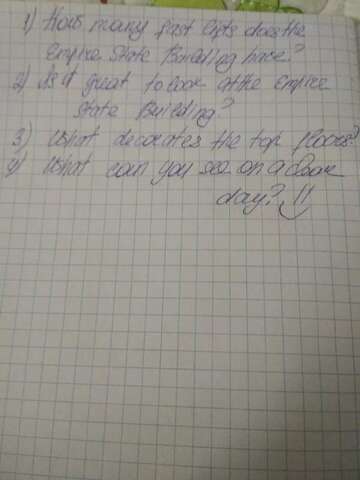 1) How many fast lifts does the
Empire State Building have?
2) Is it great to look at the Empire
State Building?
3) What decorates the top floors?
4) What can you see on a clear
day?